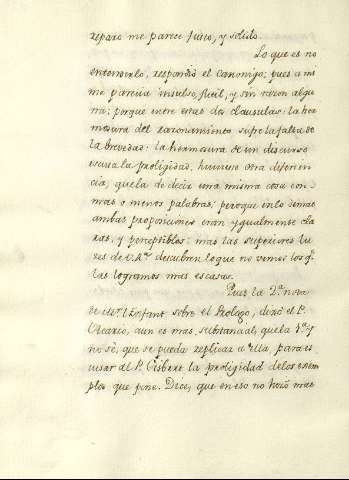 reparo me parece juno, y solido.
Lo que es no
entenderlo, respondió el Canonigo; pues a mi
me parecia insulso, futil, y sin razon algu
na; porque entre estas dos clausulas: la her
mosura del razonamiento suple la falta de
la brevedad: la hermosura de un discurso
escusa la proligidad, hai uno otra diferen
cia, que la de decir una misma cosa con
mas o menos palabras, pero que en lo demas
ambas proposiciones eran ygualmente cla
ras, y perceptibles: mas las superiores lu
zes de V. Rma. descubren lo que no vemos los q.e
las logramos mas escasas.
Pues la 2.ª nota
de Mr. L'Enfant sobre el Prologo, dixo el P.
Vicario, aun es mas substancial, que la 1.ª y
no sè, que se pueda replicar a ella, para es
cusar al P. Gisbert la prolijidad de los exem
plos que pone. Dice, que en eso no hizo mas